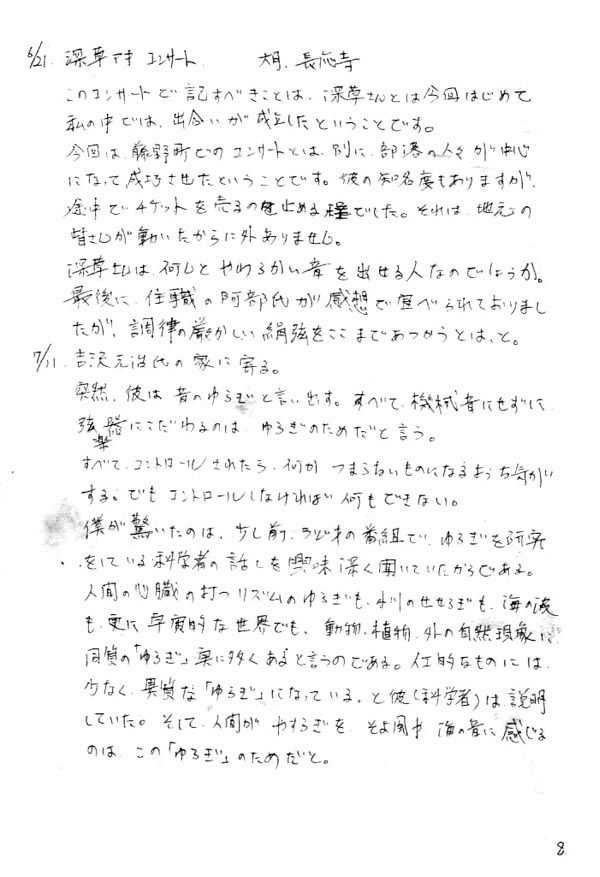 6/21. 深草アキ コンサート 大月. 長応寺
このコンサートで記すべきことは、深草さんとは今回はじめて
私の中では、出合いが成立したということです。
今回は、藤野町でのコンサートとは、別に、部落の人々が中心
になって成功させたということです。彼の知名度もありますが、
途中でチケットを売るのを止める程でした。それは、地元の
皆さんが動いたからに外ありません。
深草さんは何んとやわらかい音を出せる人なのでしょうか。
最後に、住職の阿部氏が感想で宣べられておりまし
たが、調律の厳かしい絹弦をここまであつかうとは、と。
7/11. 吉沢元治氏の家に寄る。
突然、彼は音のゆるぎと言い出す。すべて、機械音にせずに、
弦楽器にこだわるのは、ゆるぎのためだと言う。
すべて、コントロールされたら、何か つまらないものになるような気が
する。でもコントロールしなければ何もできない。
僕が驚いたのは、少し前、ラジオの番組で、ゆるぎを研究
をしている科学者の話しを興味深く聞いていたからである。
人間の心臓の打つリズムのゆるぎも、小川のせせらぎも、海の波
も、更に 写実的な世界でも、動物、植物、外の自然現象に、
同質の「ゆるぎ」実に多くあると言うのである。人工的なものには、
少なく、異質な「ゆるぎ」になっている、と彼(科学者)は、説明
していた。そして、人間が やすらぎを、そよ風や 海の音に感じる
のは、この「ゆるぎ」のためだと。
8